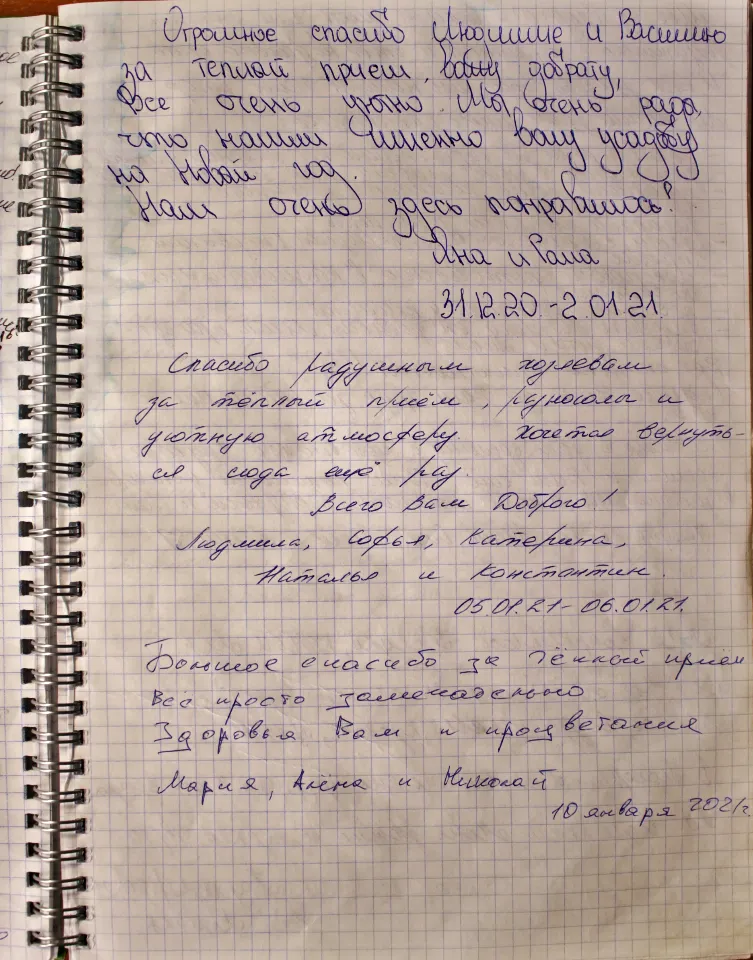 Огромное спасибо Людмиле и Василию
за теплой прием, вашу доброту,
Все очень уютно. Мы очень рады,
что нашли именно вашу усадьбу
на Новой год.
Нам очень здесь понравилось!
Яна и Рома
31.12.20.-2.01.21.
Спасибо радушным хозяевам
за тёплый приём, разносолы и
уютную атмосферу. Хочется вернуть-
ся сюда ещё раз.
Всего Вам Доброго!
Людмила, Софья, Катерина,
Наталья и Константин.
05.01.21-06.01.21.
Большое спасибо за тёплый прием
Всё просто замечательно
Здоровья Вам и процветания
Мария, Алёна и Николай
10 января 2021г.